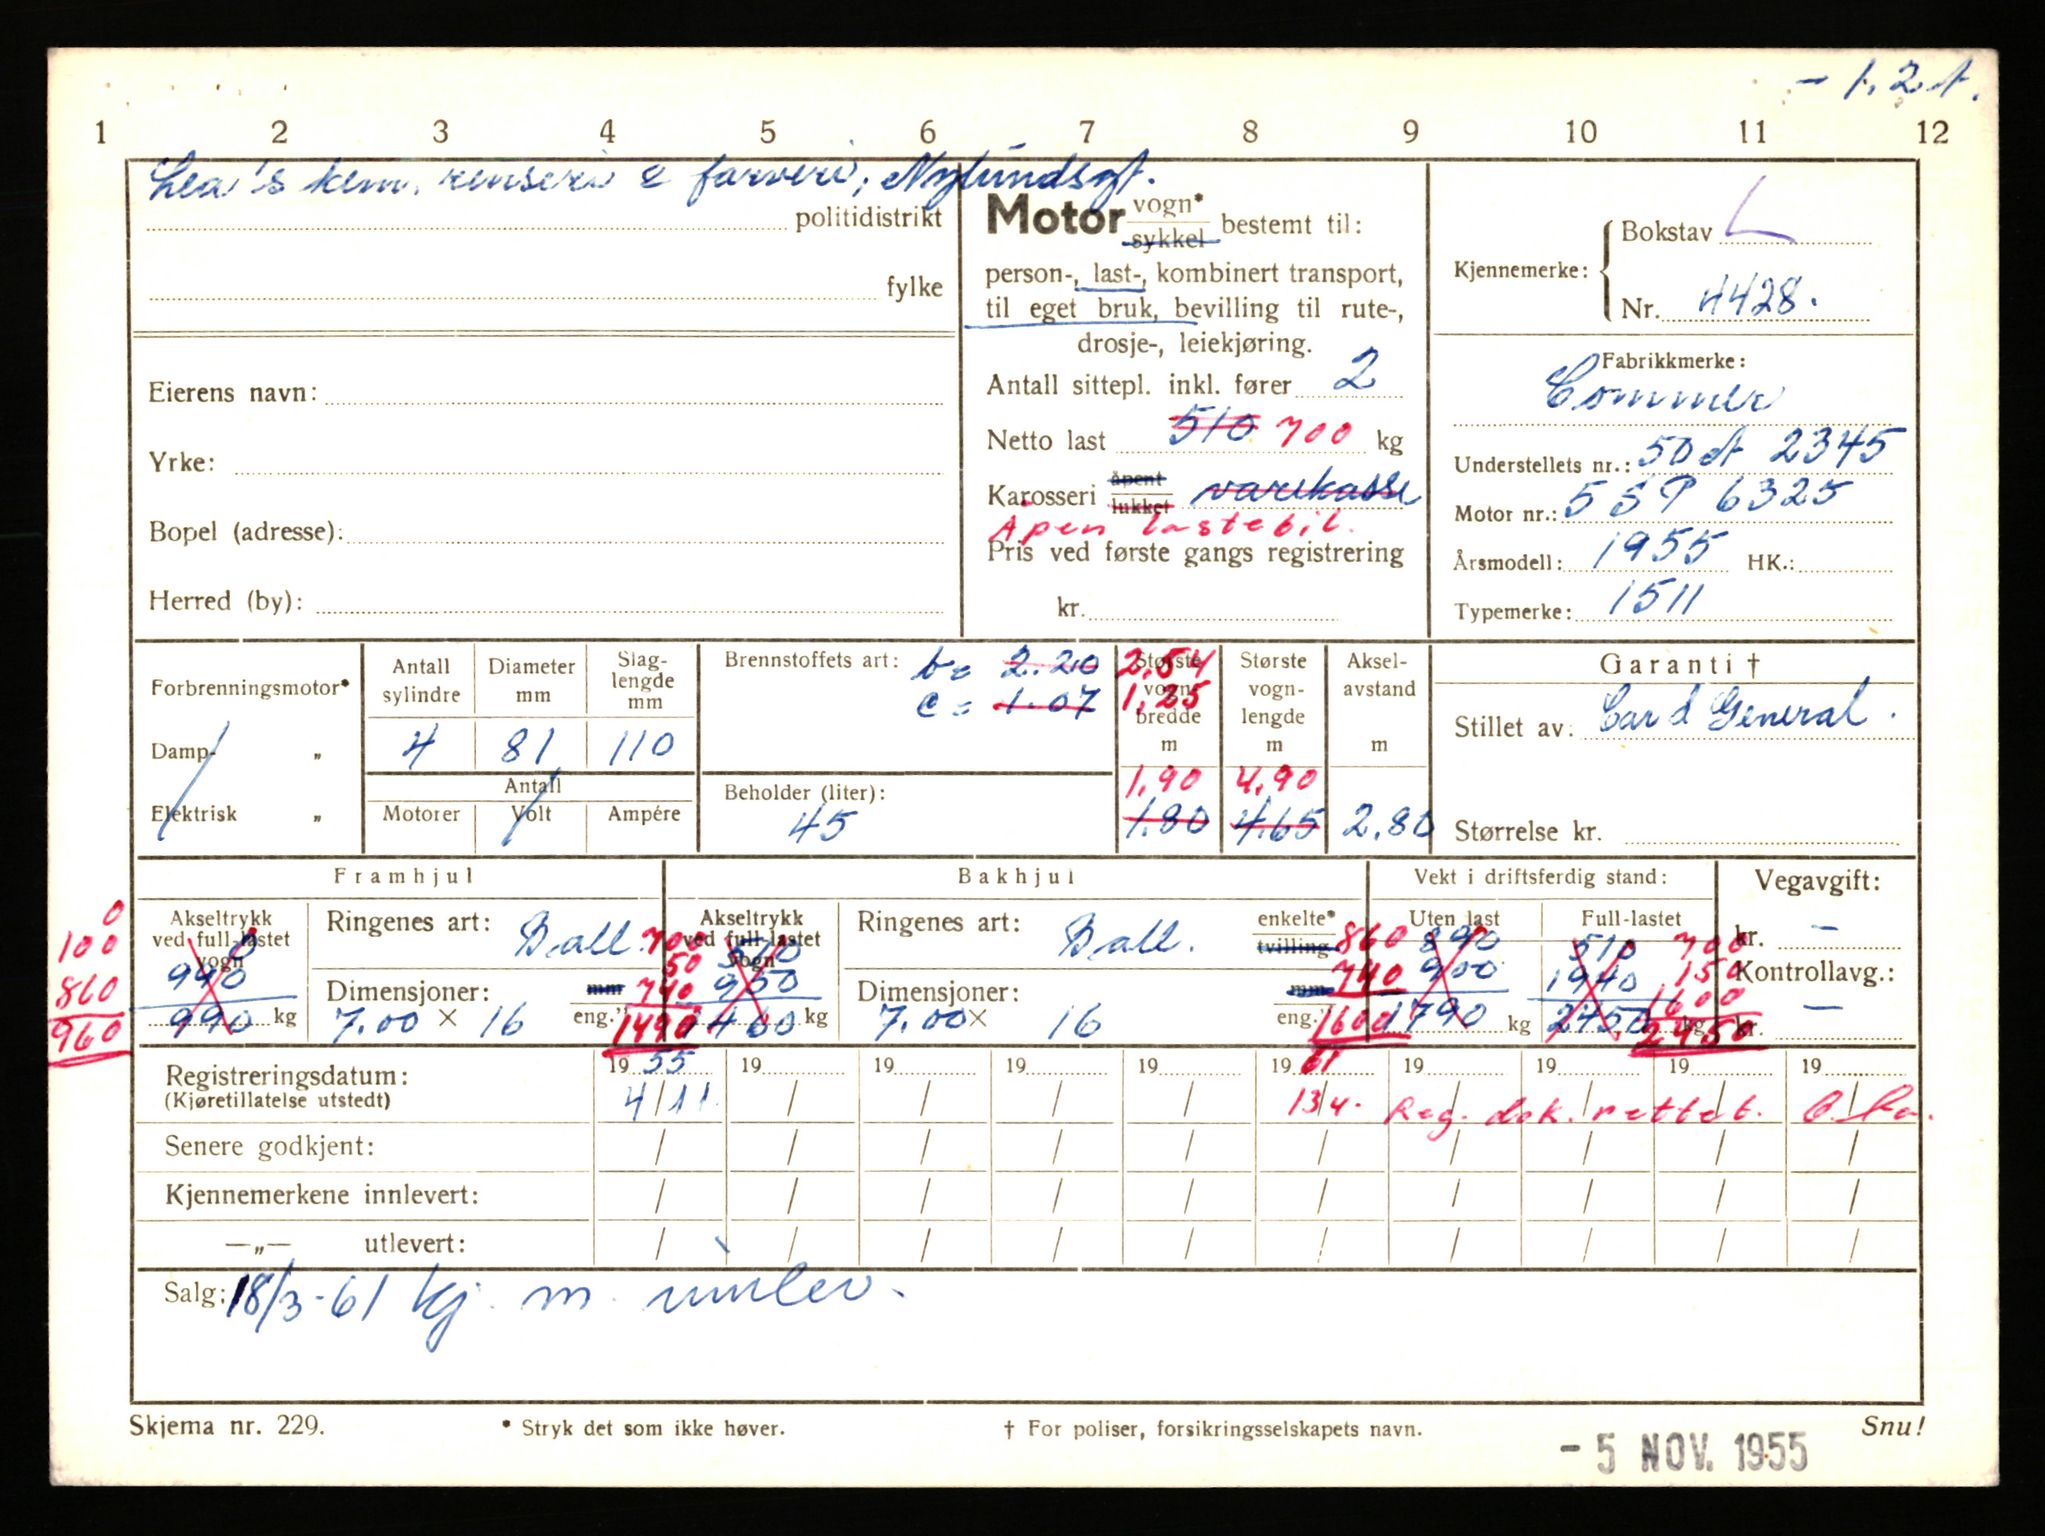 - 1.2 t.
1 2 3 4 5 6 7 8 9 10 11 12
Lea's kem. renseri & farveri, Nylundsgt.
politidistrikt
fylke
Eierens navn:
Yrke:
Bopel (adresse):
Herred (by):
Motor vogn* sykkel bestemt til:
person-, last-, kombinert transport,
til eget bruk, bevilling til rute-,
drosje-, leiekjøring.
Antall sittepl. inkl. fører 2
Netto last 510 700 kg
Karosseri åpent lukket varekasse
Åpen lastebil.
Pris ved første gangs registrering
kr.
Kjennemerke: Bokstav L
Nr. 4428.
Fabrikkmerke:
Commer
Understellets nr.: 50 dt 2345
Motor nr.: 5 SP 6325
Årsmodell: 1955 HK.:
Typemerke: 1511
Forbrenningsmotor*
Damp- „
Elektrisk „
Antall sylindre
Diameter mm
Slag-lengde mm
4 81 110
Antall
Motorer Volt Ampére
Brennstoffets art: b = 2.20 2,54
c = 1.07 1,25
Beholder (liter):
45
Største vogn-bredde m
1,90
1.80
Største vogn-lengde m
4,90
4.65
Aksel-avstand m
2.80
Garanti †
Stillet av: Car d General.
Størrelse kr.
Framhjul
Akseltrykk ved full-lastet vogn
0
990
990 kg
0
100
860
960
Ringenes art: Ball.
Dimensjoner: mm
7.00 × 16 eng."
Bakhjul
Akseltrykk ved full-lastet vogn
510
950
1460 kg
700
50
740
1490
Ringenes art: Ball. enkelte* tvilling
Dimensjoner: mm
7.00 × 16 eng."
Vekt i driftsferdig stand:
Uten last
890
900
1790 kg
860
740
1600
Full-lastet
510
1940
2450 kg
700
150
1600
2450
Vegavgift:
kr. —
Kontrollavg.:
kr. —
Registreringsdatum: 19 55 19 19 19 19 19 61 19 19 19 19
(Kjøretillatelse utstedt) 4/11. / / / / 13/4. Reg. dok. rettet.
Senere godkjent: / / / / / / / / / /
Kjennemerkene innlevert: / / / / / / / / / /
—„— utlevert: / / / / / / / / / /
Salg: 18/3-61 kj. m. innlev.
Skjema nr. 229.
* Stryk det som ikke høver.
† For poliser, forsikringsselskapets navn.
Snu!
- 5 NOV. 1955